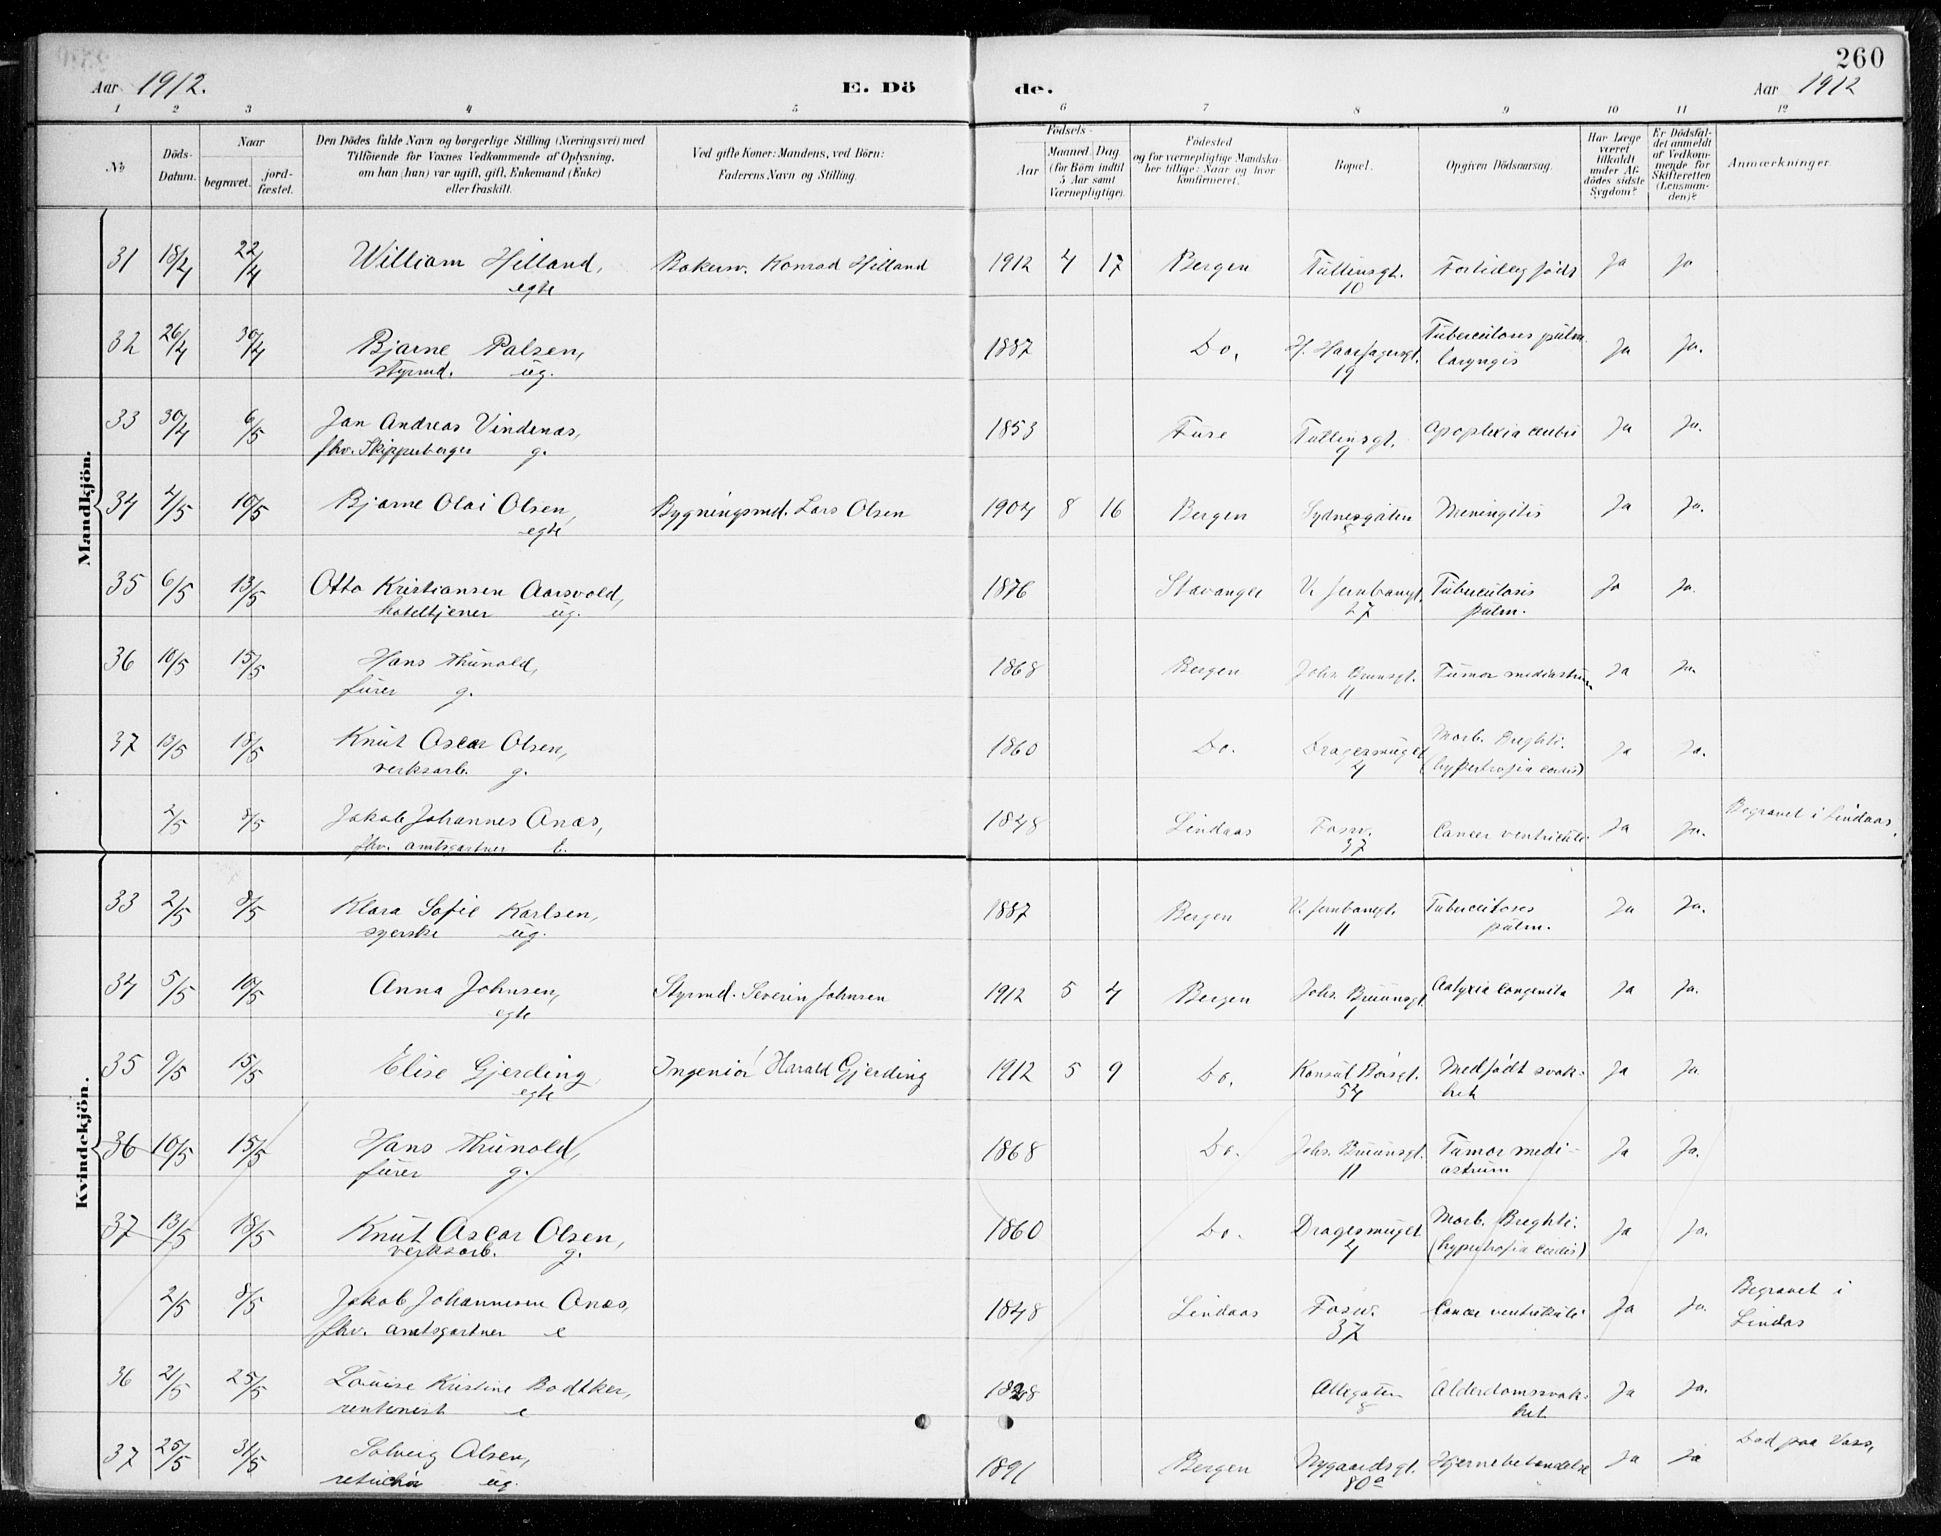 260
Aar 1912. E. Dö de. Aar 1912
1 2 3 4 5 6 7 8 9 10 11 12
No Döds-Datum. Naar begravet. jord-fæstet. Den Dödes fulde Navn og borgerlige Stilling (Næringsvei) med Tilföiende for Voxnes Vedkommende af Oplysning, om han (hun) var ugift, gift, Enkemand (Enke) eller fraskilt. Ved gifte Koner: Mandens, ved Börn: Faderens Navn og Stilling. Födsels- Aar Maaned Dag (for Börn indtil 5 Aar samt Værnepligtige). Födested og for værnepligtige Mandskaber tillige: Naar og hvor konfirmeret. Bopæl. Opgiven Dödsaarsag. Har Læge været tilkaldt under Afdödes sidste Sygdom? Er Dödsfaldet anmeldt af Vedkommende for Skifteretten (Lensmanden)? Anmærkninger.
Mandkjön.
31 18/4 22/4 William Hilland, Bakersv. Konrad Hilland 1912 4 17 Bergen Tullinsgt. Fortidlig födt Ja Ja
egte 10
32 26/4 30/4 Bjarne Palsen, 1887 Do. H. Haarfagersgt. Tuberculoses pulm. Ja Ja.
styrmd. ug. 19 laryngis
33 30/4 6/5 Jan Andreas Vindenas, 1853 Fuse Tullinsgt. Apoplexia cerebri Ja Ja.
fhv. Skipperborger g. 9
34 4/5 10/5 Bjarne Olai Olsen, Bygningsmd. Lars Olsen 1904 8 16 Bergen Sydnesgaten Meningitis Ja Ja.
egte
35 6/5 13/5 Otto Kristiansen Aarsvold, 1876 Stavanger V. Jernbanegt. Tuberculosis Ja Ja.
hoteltjener ug. 27 pulm.
36 10/5 15/5 Hans Thunold, 1868 Bergen Johs. Bruunsgt. Tumor mediastrum Ja Ja.
furer g. 11
37 13/5 18/5 Knut Oscar Olsen, 1860 Do. Dragesmuget Morb. Breghti. Ja Ja.
verksarb. g. 4 (hypertrofia cordis)
2/5 8/5 Jakob Johannes Onæs, 1848 Lindaas Fosw. Cancer ventriculi Ja Ja. Begravet i Lindaas.
fhv. amtsgartner E. 37
Kvindekjön.
33 2/5 8/5 Klara Sofie Karlsen, 1887 Bergen V. Jernbanegt. Tuberculoses Ja Ja.
syerske ug. 11 pulm.
34 5/5 10/5 Anna Johnsen, Styrmd. Severin Johnsen 1912 5 4 Bergen Johs. Bruunsgt. Asfyxia congenita Ja Ja.
egte 1
35 9/5 15/5 Elise Gjerding Ingeniör Harald Gjerding 1912 5 9 Do. Konsul Börsgt. Medfödt svak- Ja Ja
egte 54 het
36 10/5 15/5 Hans Thunold, 1868 Do. Johs. Bruunsgt. Tumor medi- Ja Ja.
furer g. 11 astrum
37 13/5 18/5 Knut Oscar Olsen, 1860 Do. Dragesmuget Morb. Breghti. Ja Ja.
verksarb. g. 4 (hypertrofia cordis)
2/5 8/5 Jakob Johannesen Onæs, 1848 Lindaas Fosw. Cancer ventrikuli Ja Ja. Begravet i
fhv. amtsgartner e 37 Lindas
36 21/5 25/5 Louise Kristine Bodtker, 1828 Allegaten Alderdomssvak- Ja Ja.
rentenist e 8 het
37 25/5 31/5 Solveig Olsen, 1891 Bergen Nygaardsgt. Hjernebetændelse Ja Ja Död paa Voss.
ug. 80a